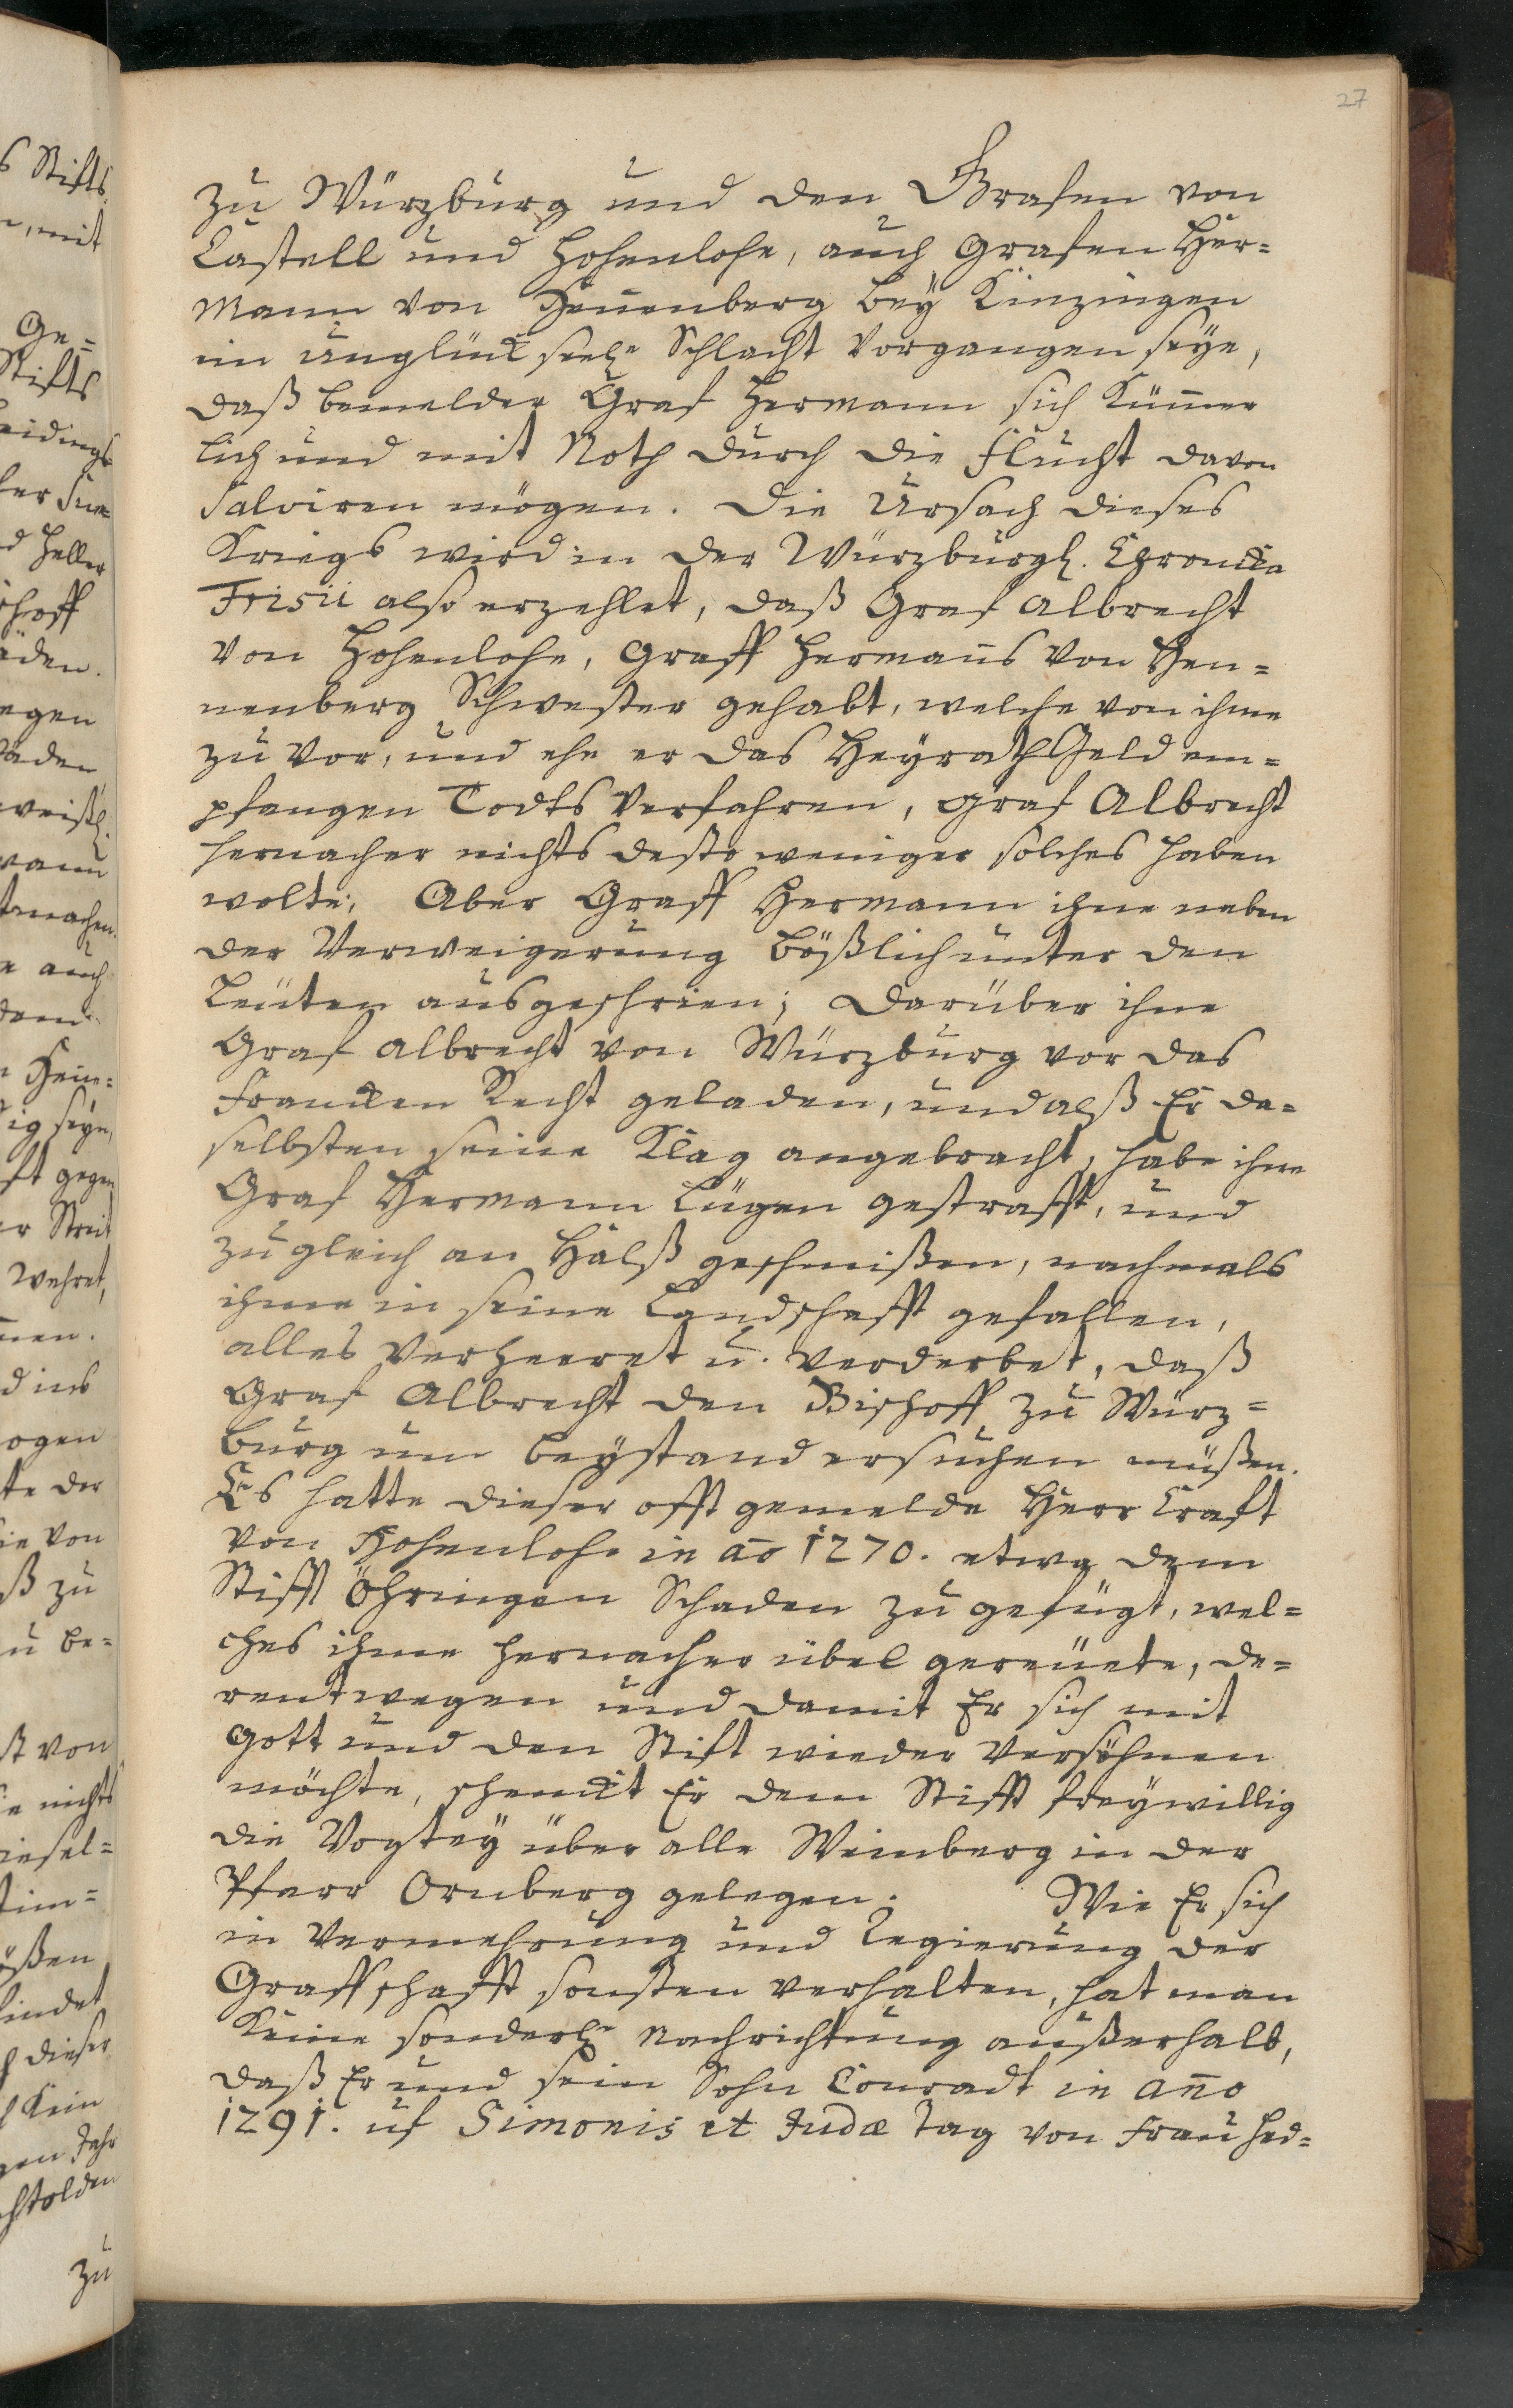 27
zu Würzburg und den Grafen von
Castell und Hohenlohe, auch Grafen Her=
mann von Hennenberg bey Kinzingen
ein unglückseel. Schlacht vorgangen seye,
daß bemelder Graf Hermann sich Kümer
lich und mit Noth durch die Flucht davon
salviren mögen. Die Ursach dieses
Kriegs wird in der Würzburgl. Chronicka
Frisii also erzehlet, daß Graf Albrecht
von Hohenlohe, Graff Hermans von Hen=
nenberg Schwester gehabt, welche von ihme
zu vor, und ehe er das Heyrath Geld em=
pfangen Todts verfahren, Graf Albrecht
hernacher nichts desto weniger solches haben
wolte; Aber Graff Hermann ihne neben
der Verweigerung bößlich unter den
Leuten ausgeschrien; Darüber ihne
Graf Albrecht von Würzburg vor das
Francken Recht geladen, und alß Er da=
selbsten seine Klag angebracht, habe ihne
Graf Hermann Lügen gestrafft, und
zugleich an Halß geschmißen, nachmals
ihme in seine Landschafft gefallen,
alles verheeret u. verderbet, daß
Graf Albrecht den Bischoff zu Würz=
burg um beystand ersuchen müßen.
Es hatte dieser offt gemelde Herr Craft
von Hohenlohe in ao 1270. etwa dem
Stifft Öhringen Schaden zu gefügt, wel=
ches ihme hernacher übel gereuete, de=
rentwegen und damit Er sich mit
Gott und den Stift wieder versöhnen
möchte, schenckt Er dem Stifft freywillig
die Vogtey über alle Weinberg in der
Pfarr Ornberg gelegen. Wie Er sich
in Vermehrung und Regierung der
Graffschafft sonsten verhalten, hat man
Keine sonderl. Nachrichtung außerhalb,
daß Er und sein Sohn Conradt in Ano
1291. uf Simonis et Judæ Tag von Frau Hed=